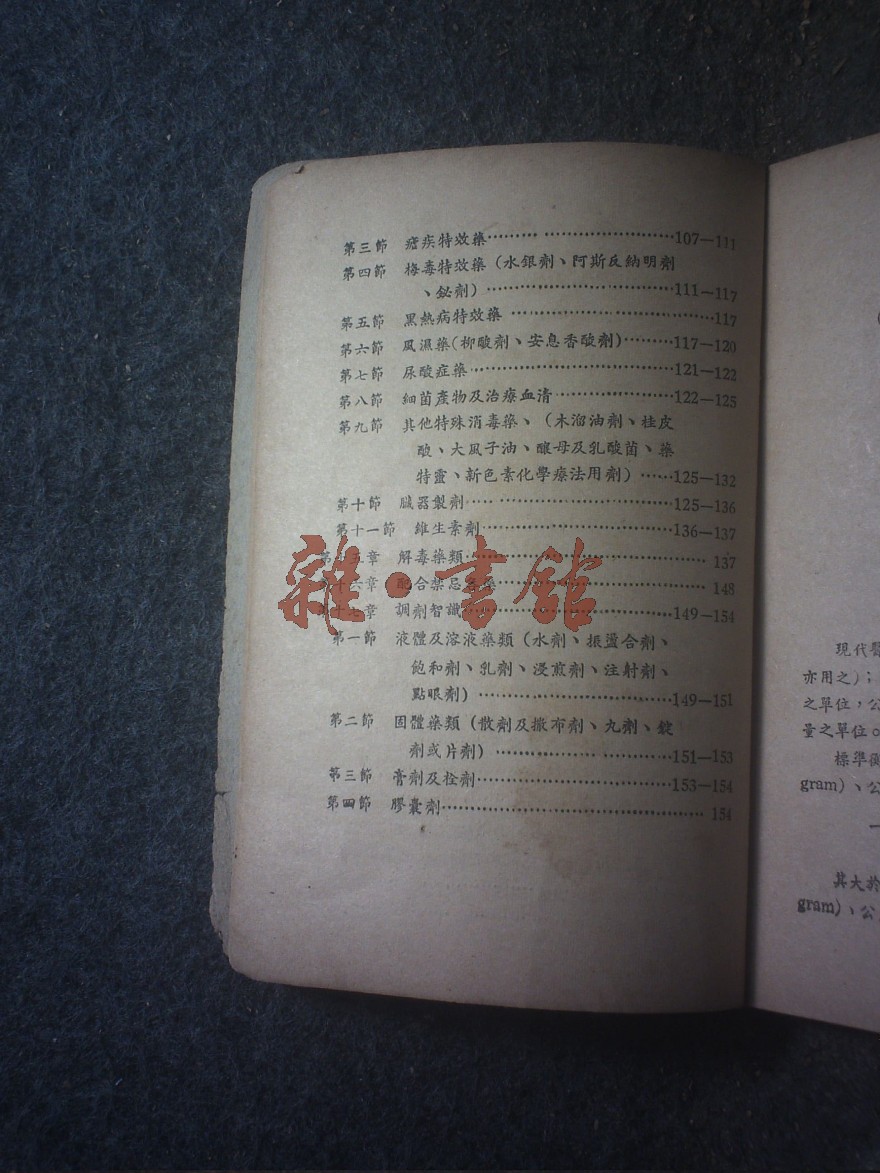 第三節 瘧疾特效藥……………………107—111
第四節 梅毒特效藥（水銀劑、阿斯反納明劑
、鉍劑）……………………111—117
第五節 黑熱病特效藥……………………117
第六節 風濕藥（柳酸劑、安息香酸劑）………117—120
第七節 尿酸症藥……………………121—122
第八節 細菌產物及治療血清……………122—125
第九節 其他特殊消毒藥、（木溜油劑、桂皮
酸、大風子油、釀母及乳酸菌、藥
特靈、新色素化學療法用劑）……125—132
第十節 臟器製劑……………………125—136
第十一節 維生素劑……………………136—137
十五章 解毒藥類……………………137
十六章 配合禁忌藥……………………148
十七章 調劑智識……………………149—154
第一節 液體及溶液藥類（水劑、振盪合劑、
飽和劑、乳劑、浸煎劑、注射劑、
點眼劑）……………………149—151
第二節 固體藥類（散劑及撒布劑、丸劑、錠
劑或片劑）……………………151—153
第三節 膏劑及栓劑……………………153—154
第四節 膠囊劑……………………154
雜·書館
現代醫
亦用之）；
之單位，公
量之單位。
標準衡
gram)、公
其大於
gram)、公